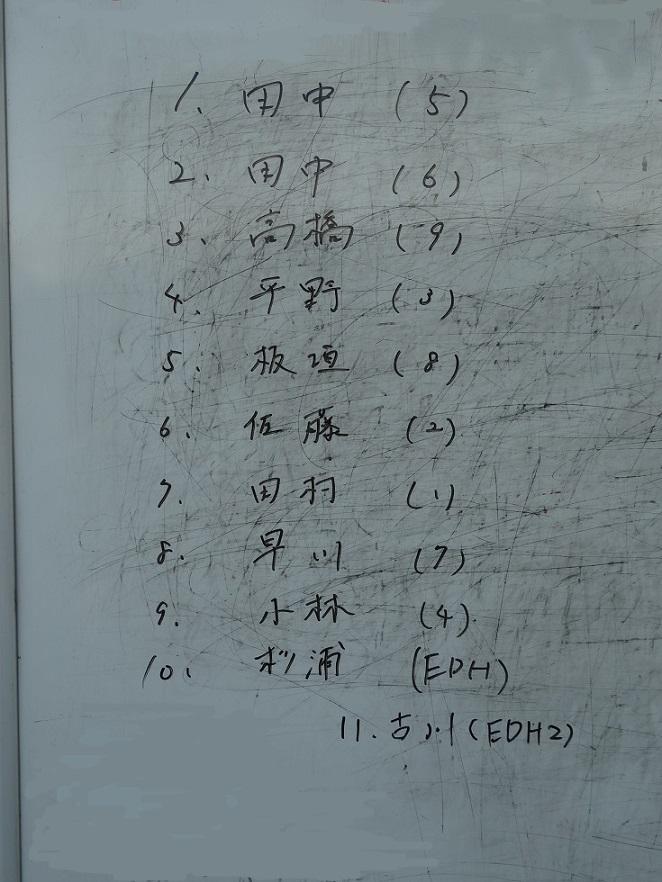 1. 田中 (5)
2. 田中 (6)
3. 高橋 (9)
4. 平野 (3)
5. 板垣 (8)
6. 佐藤 (2)
7. 田村 (1)
8. 早川 (7)
9. 小林 (4)
10. 杉浦 (EDH)
11. 古川 (EDH2)